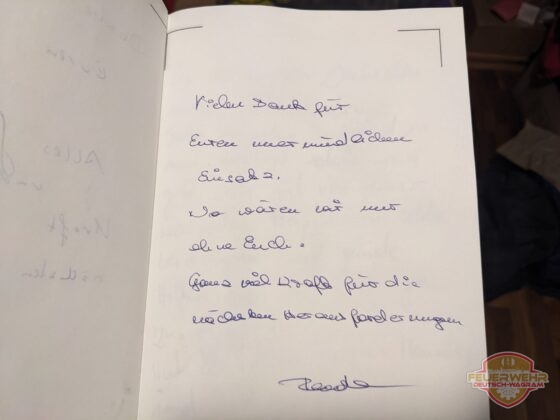 Vielen Dank für
Euren unermüdlichen
Einsatz.
Wo wären wir nur
ohne Euch.
Ganz viel Kraft für die
nächsten Herausforderungen
Alles
und
Kraft
nächsten
FEUERWEHR
DEUTSCH-WAGRAM